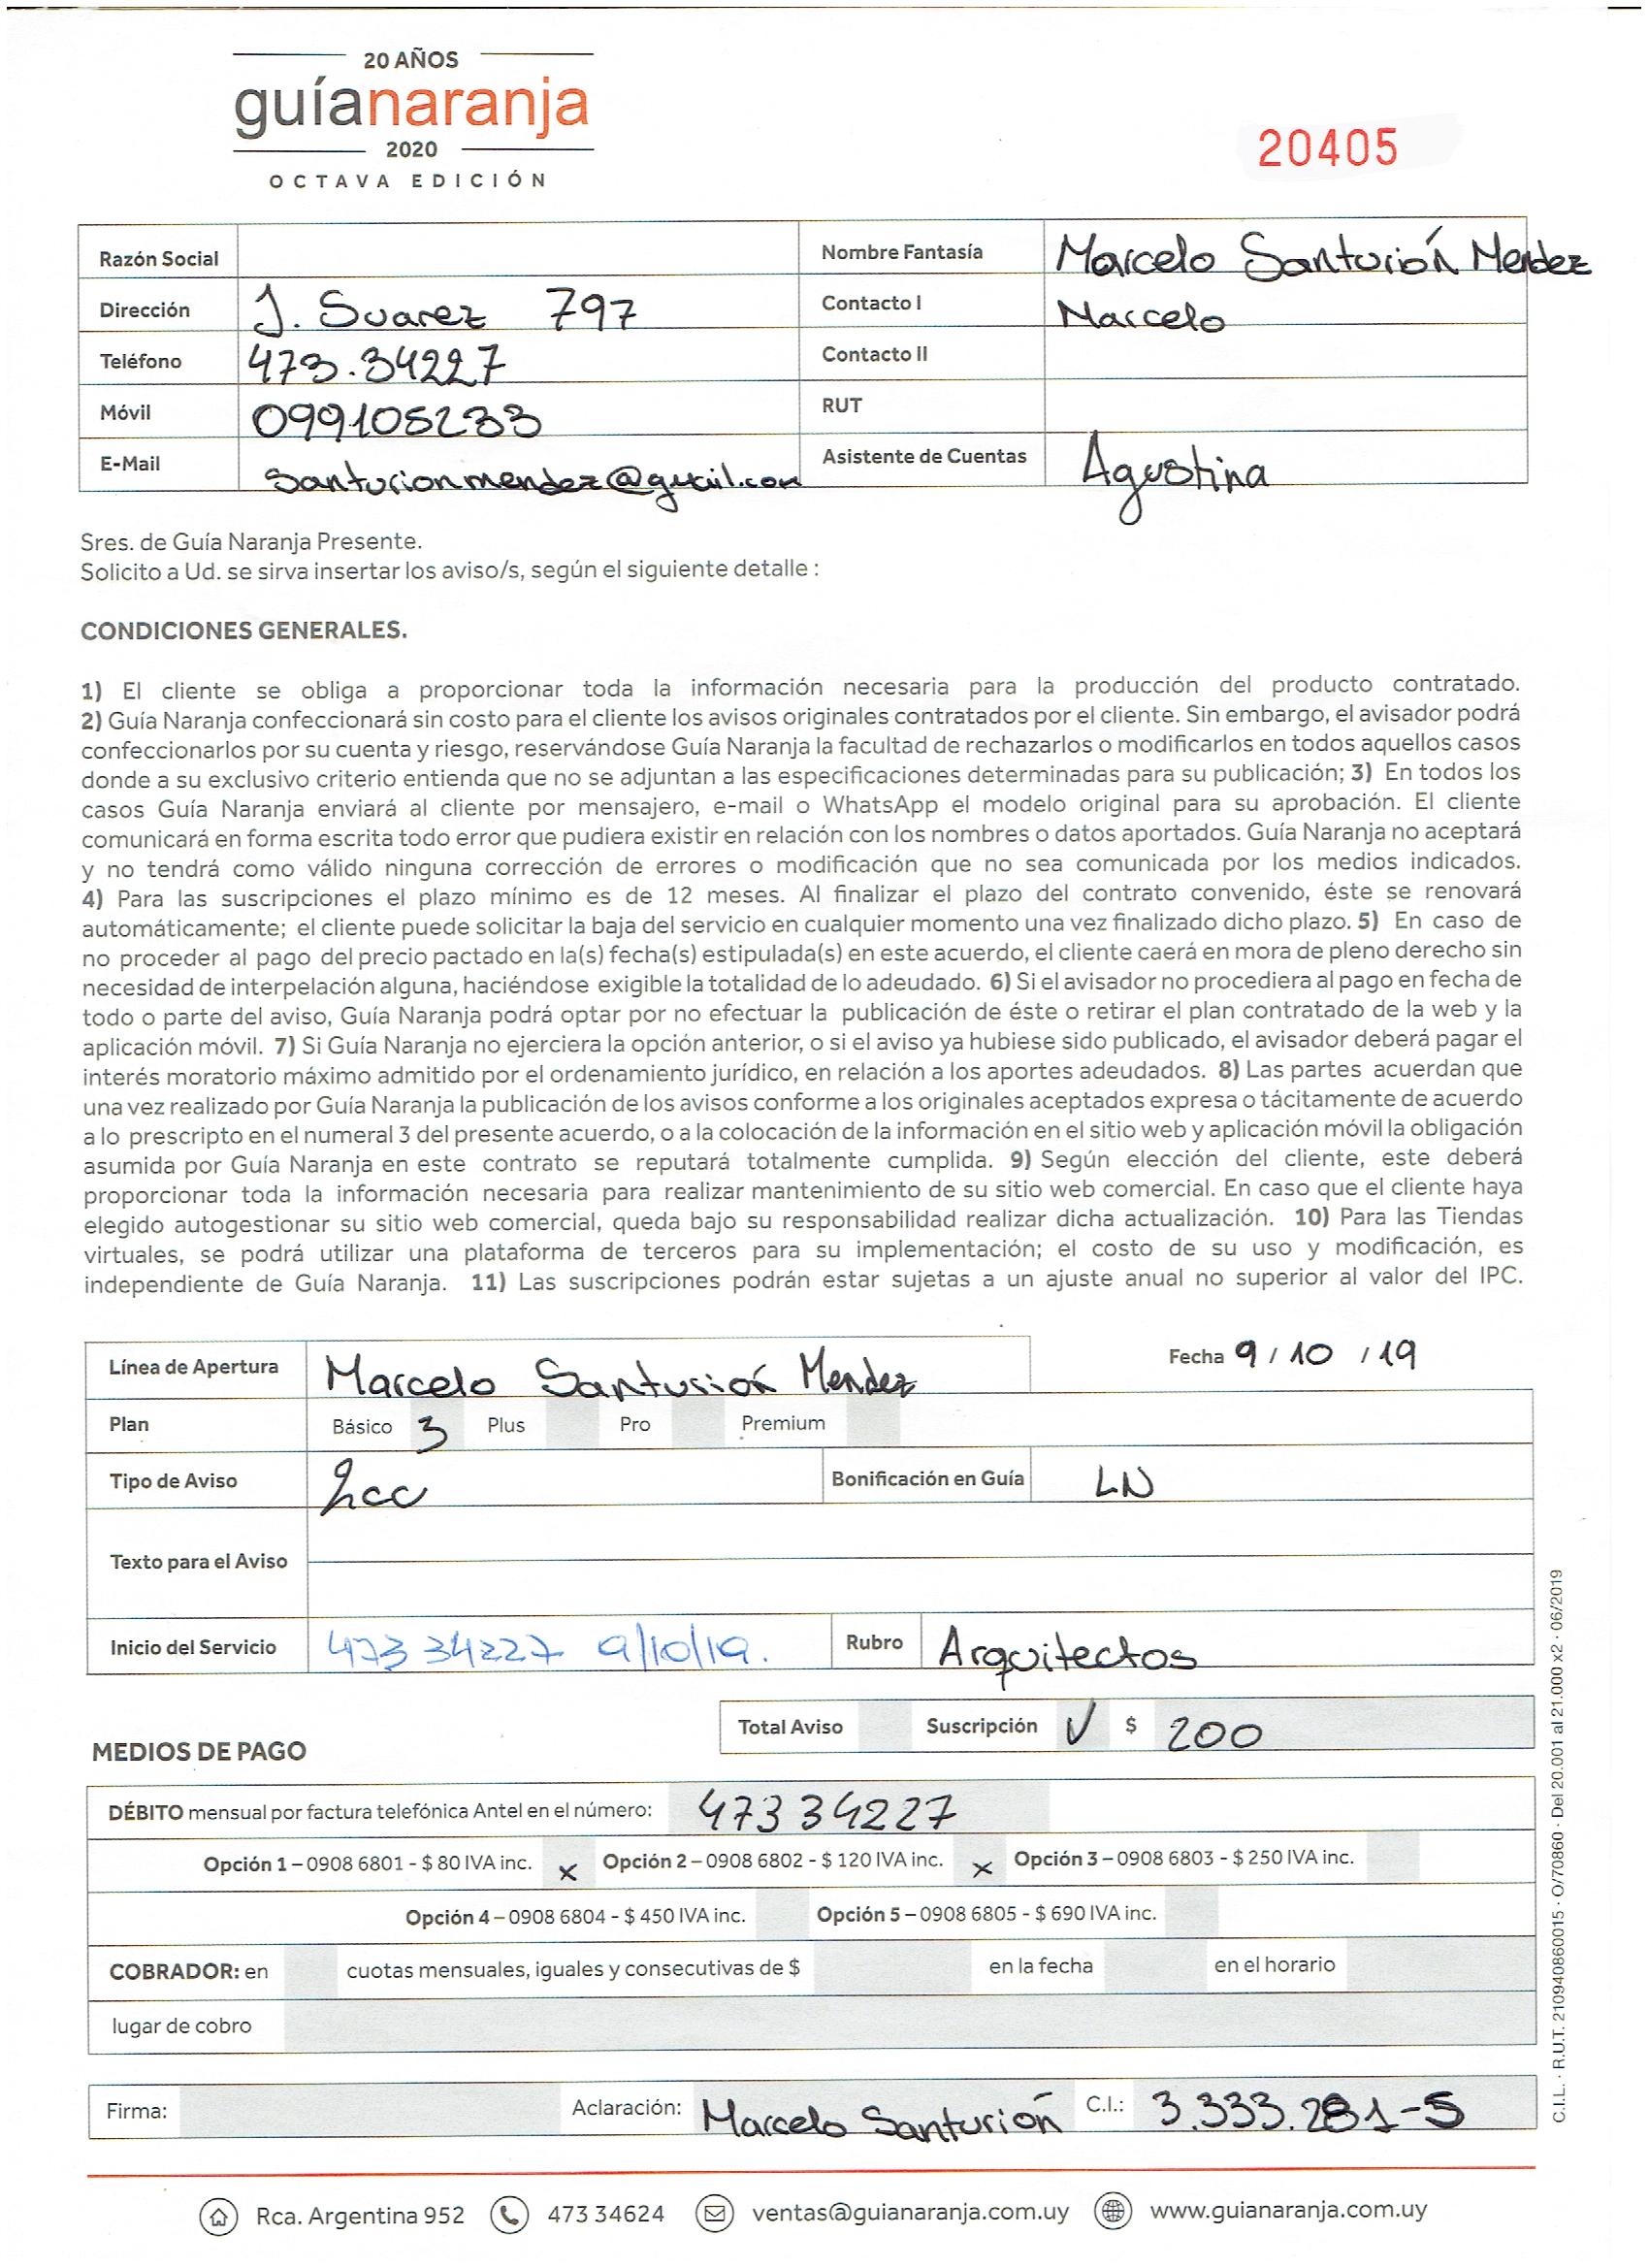 20 AÑOS
guíanaranja
2020
OCTAVA EDICIÓN
20405
Razón Social
Nombre Fantasía Marcelo Santurión Mendez
Dirección J. Suarez 797
Contacto I Marcelo
Teléfono 473.34227
Contacto II
Móvil 099105233
RUT
E-Mail santurionmendez@gmail.com
Asistente de Cuentas Agustina
Sres. de Guía Naranja Presente.
Solicito a Ud. se sirva insertar los aviso/s, según el siguiente detalle :
CONDICIONES GENERALES.
1) El cliente se obliga a proporcionar toda la información necesaria para la producción del producto contratado.
2) Guía Naranja confeccionará sin costo para el cliente los avisos originales contratados por el cliente. Sin embargo, el avisador podrá
confeccionarlos por su cuenta y riesgo, reservándose Guía Naranja la facultad de rechazarlos o modificarlos en todos aquellos casos
donde a su exclusivo criterio entienda que no se adjuntan a las especificaciones determinadas para su publicación; 3) En todos los
casos Guía Naranja enviará al cliente por mensajero, e-mail o WhatsApp el modelo original para su aprobación. El cliente
comunicará en forma escrita todo error que pudiera existir en relación con los nombres o datos aportados. Guía Naranja no aceptará
y no tendrá como válido ninguna corrección de errores o modificación que no sea comunicada por los medios indicados.
4) Para las suscripciones el plazo mínimo es de 12 meses. Al finalizar el plazo del contrato convenido, éste se renovará
automáticamente; el cliente puede solicitar la baja del servicio en cualquier momento una vez finalizado dicho plazo. 5) En caso de
no proceder al pago del precio pactado en la(s) fecha(s) estipulada(s) en este acuerdo, el cliente caerá en mora de pleno derecho sin
necesidad de interpelación alguna, haciéndose exigible la totalidad de lo adeudado. 6) Si el avisador no procediera al pago en fecha de
todo o parte del aviso, Guía Naranja podrá optar por no efectuar la publicación de éste o retirar el plan contratado de la web y la
aplicación móvil. 7) Si Guía Naranja no ejerciera la opción anterior, o si el aviso ya hubiese sido publicado, el avisador deberá pagar el
interés moratorio máximo admitido por el ordenamiento jurídico, en relación a los aportes adeudados. 8) Las partes acuerdan que
una vez realizado por Guía Naranja la publicación de los avisos conforme a los originales aceptados expresa o tácitamente de acuerdo
a lo prescripto en el numeral 3 del presente acuerdo, o a la colocación de la información en el sitio web y aplicación móvil la obligación
asumida por Guía Naranja en este contrato se reputará totalmente cumplida. 9) Según elección del cliente, este deberá
proporcionar toda la información necesaria para realizar mantenimiento de su sitio web comercial. En caso que el cliente haya
elegido autogestionar su sitio web comercial, queda bajo su responsabilidad realizar dicha actualización. 10) Para las Tiendas
virtuales, se podrá utilizar una plataforma de terceros para su implementación; el costo de su uso y modificación, es
independiente de Guía Naranja. 11) Las suscripciones podrán estar sujetas a un ajuste anual no superior al valor del IPC.
Línea de Apertura Marcelo Santurión Mendez
Fecha 9 / 10 / 19
Plan Básico 3 Plus Pro Premium
Tipo de Aviso 2cc
Bonificación en Guía LN
Texto para el Aviso
Inicio del Servicio 473 34227 9/10/19.
Rubro Arquitectos
Total Aviso Suscripción ✓ $ 200
MEDIOS DE PAGO
DÉBITO mensual por factura telefónica Antel en el número: 473 34227
Opción 1 – 0908 6801 - $ 80 IVA inc. x Opción 2 – 0908 6802 - $ 120 IVA inc. x Opción 3 – 0908 6803 - $ 250 IVA inc.
Opción 4 – 0908 6804 - $ 450 IVA inc. Opción 5 – 0908 6805 - $ 690 IVA inc.
COBRADOR: en cuotas mensuales, iguales y consecutivas de $ en la fecha en el horario
lugar de cobro
Firma: Aclaración: Marcelo Santurión C.I.: 3.333.281-5
Rca. Argentina 952 473 34624 ventas@guianaranja.com.uy www.guianaranja.com.uy
C.I.L. · R.U.T. 210940860015 · O/70860 · Del 20.001 al 21.000 x2 · 06/2019